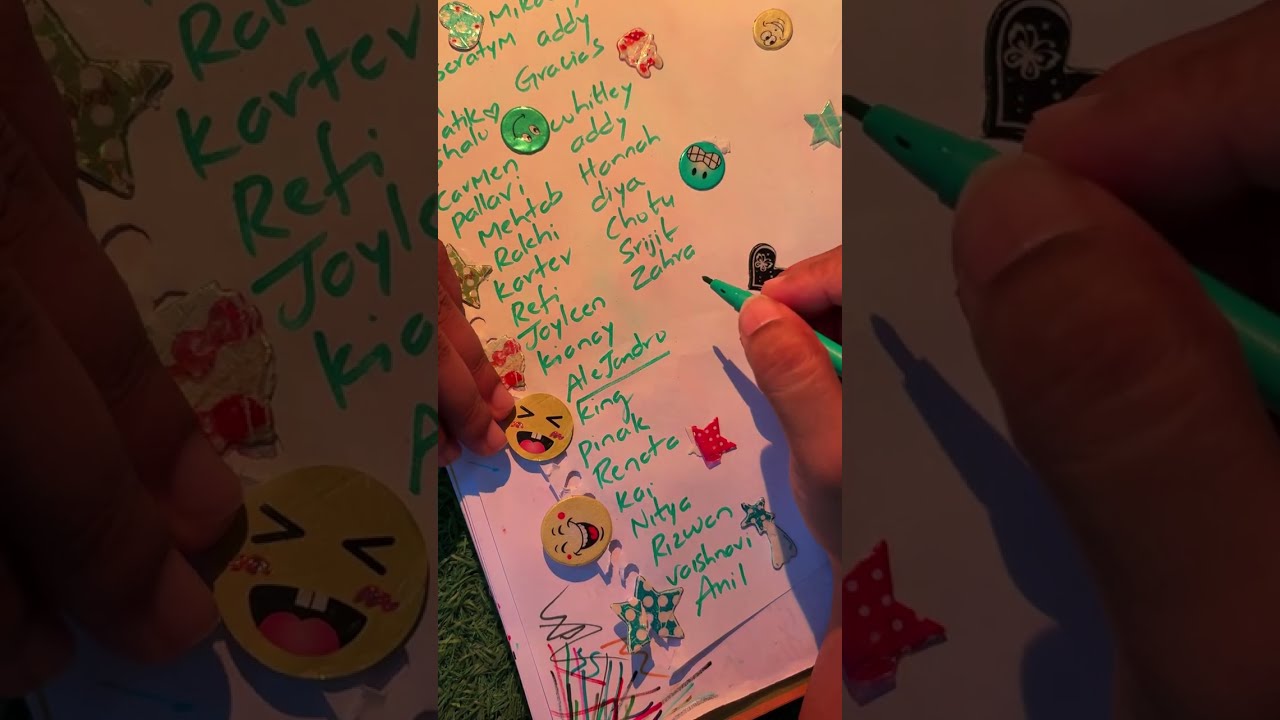 addy
Gracias
atik♡
Carmen
pallavi
Mehtab
Rakhi
Kartev
Refi
Joyleen
Kianay
AleJandro
King
Pinak
Renata
Kai
Nitya
Rizwan
vaishnavi
Anil
whitley
addy
Hannah
diya
Chotu
Srijit
Zahra